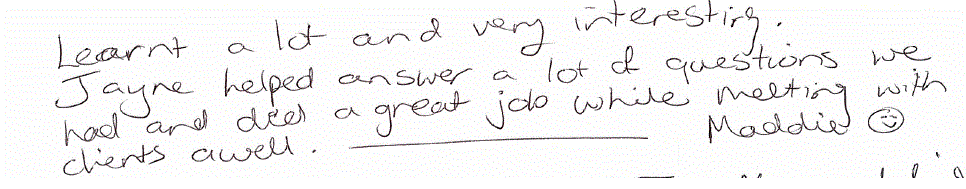 Learnt a lot and very interesting.
Jayne helped answer a lot of questions we
had and did a great job while meeting with
clients awell. Maddie ☺